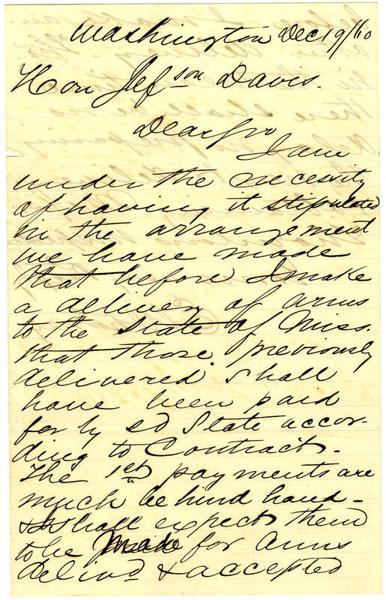 Washington Dec 19/60
Hon Jefson Davis.
Dear Sir
I am
under the necessity
of having it stipulated
in the arrangement
we have made
that before I make
a delivery of arms
to the State of Miss.
that those previously
delivered shall
have been paid
for by sd State accor-
ding to Contract.
The 1st payments are
much behind hand-
I shall expect them
to be made for Arms
delivd & accepted